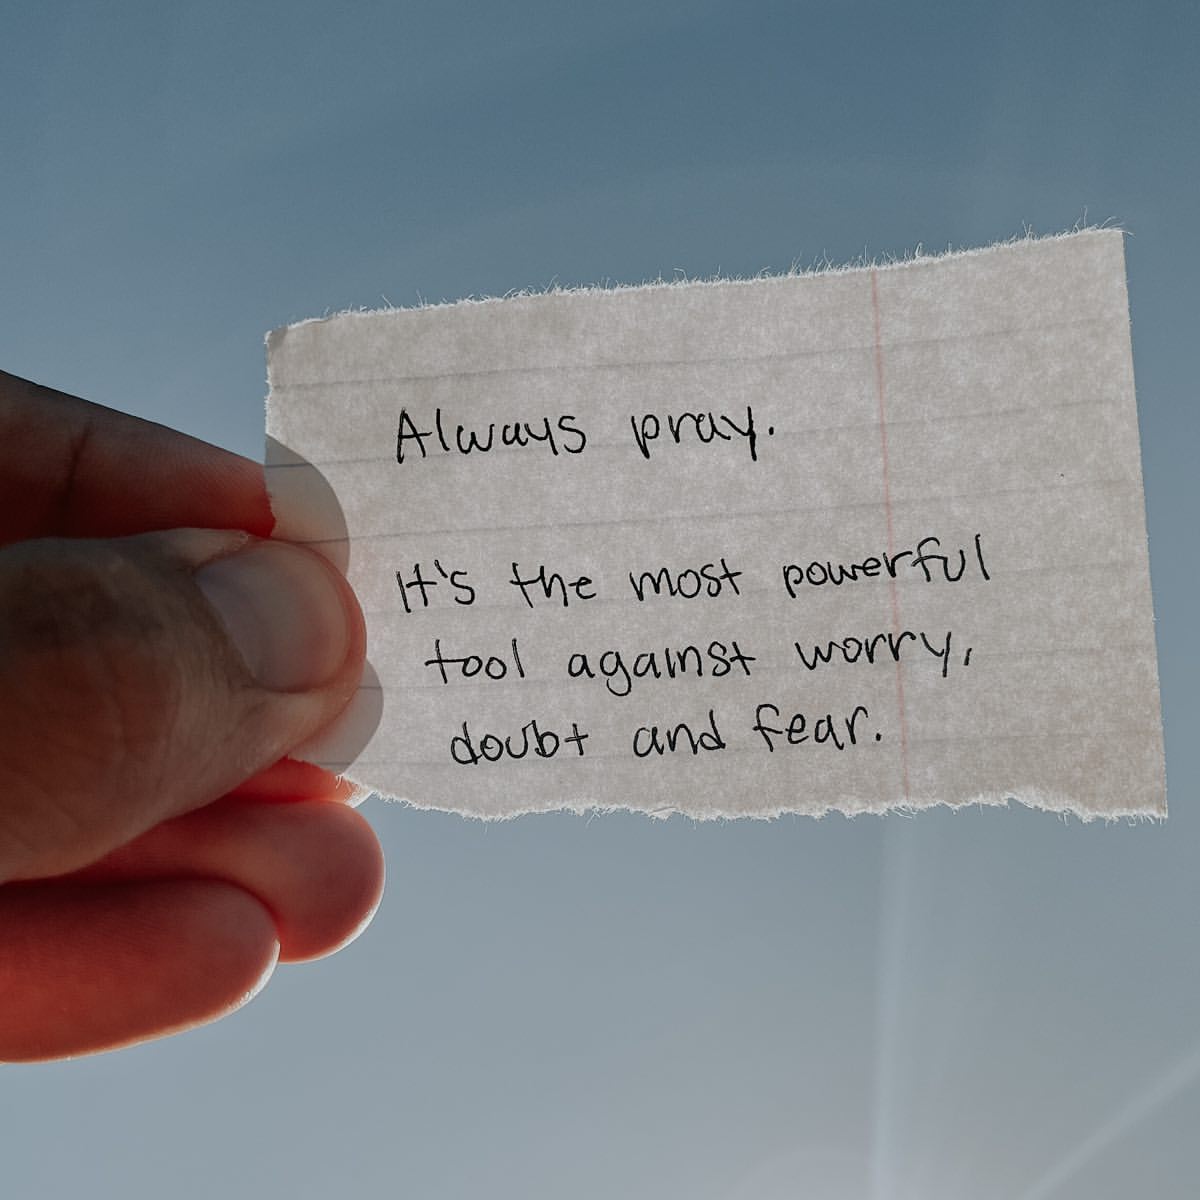 Always pray.
It's the most powerful
tool against worry,
doubt and fear.